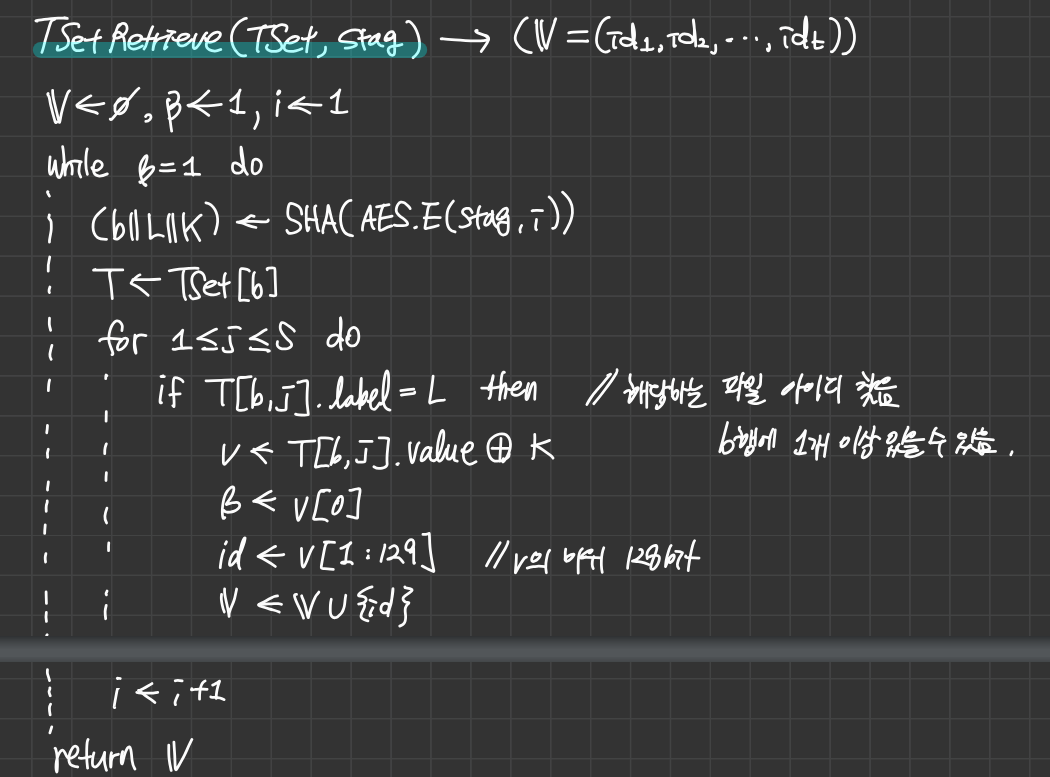 TSetRetrieve(TSet, stag) → (𝕍=(id₁, id₂, ⋯, id_t))
𝕍←∅, β←1, i←1
while β=1 do
(b||L||K) ← SHA(AES.E(stag, i))
T ← TSet[b]
for 1≤j≤S do
if T[b,j].label = L then // 해당하는 파일 아이디 찾음
b행에 1개 이상 있을 수 있음.
v ← T[b,j].value ⊕ K
β ← v[0]
id ← v[1:129] // v의 하위 128bit
𝕍 ← 𝕍 ∪ {id}
i ← i+1
return 𝕍